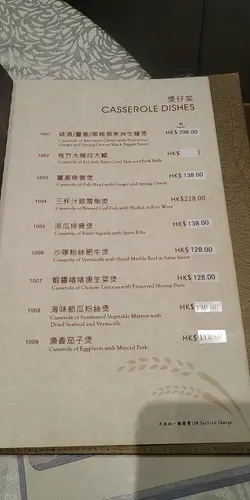 煲仔菜
CASSEROLE DISHES
1001 HK$ 208.00
Ginger and Spring Onion/Black Pepper Sauce
1002 枝竹火腩炆大鱔 HK$
Casserole of Eel with Bean Curd Skin and Pork Belly
1003 薑蔥魚雲煲 HK$ 138.00
Casserole of Fish Head with Ginger and Spring Onion
1004 三杯汁銀鱈魚煲 HK$228.00
Casserole of Braised Cod Fish with Shallot in Rice Wine
1005 涼瓜排骨煲 HK$ 138.00
Casserole of Bitter Squash with Spare Ribs
1006 沙嗲粉絲肥牛煲 HK$ 128.00
Casserole of Vermicelli with Sliced Marble Beef in Satay Sauce
1007 蝦醬啫啫唐生菜煲 HK$ 128.00
Casserole of Chinese Lettuce with Preserved Shrimp Paste
1008 海味節瓜粉絲煲 HK$ 138.00
Casserole of Symmetrical Vegetable Marrow with
Dried Seafood and Vermicelli
1009 漁香茄子煲 HK$ 118.00
Casserole of Eggplants with Minced Pork
另收加一服務費 10% Service Charge